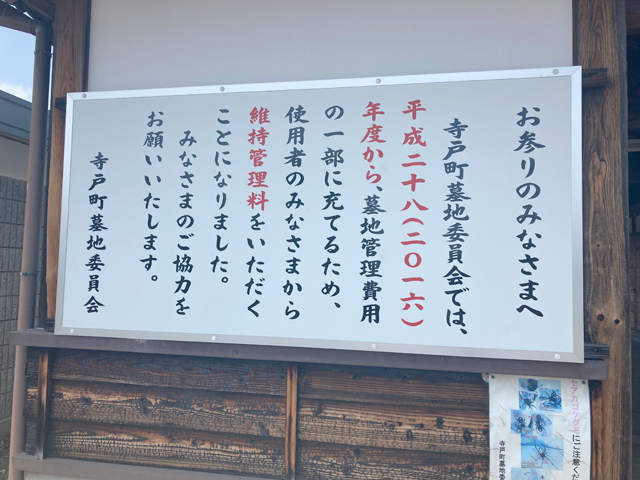 お参りのみなさまへ
寺戸町墓地委員会では、
平成二十八(二〇一六)
年度から、墓地管理費用
の一部に充てるため、
使用者のみなさまから
維持管理料をいただく
ことになりました。
みなさまのご協力を
お願いいたします。
寺戸町墓地委員会
セアカゴケグモにご注意くだ
寺戸町墓地委